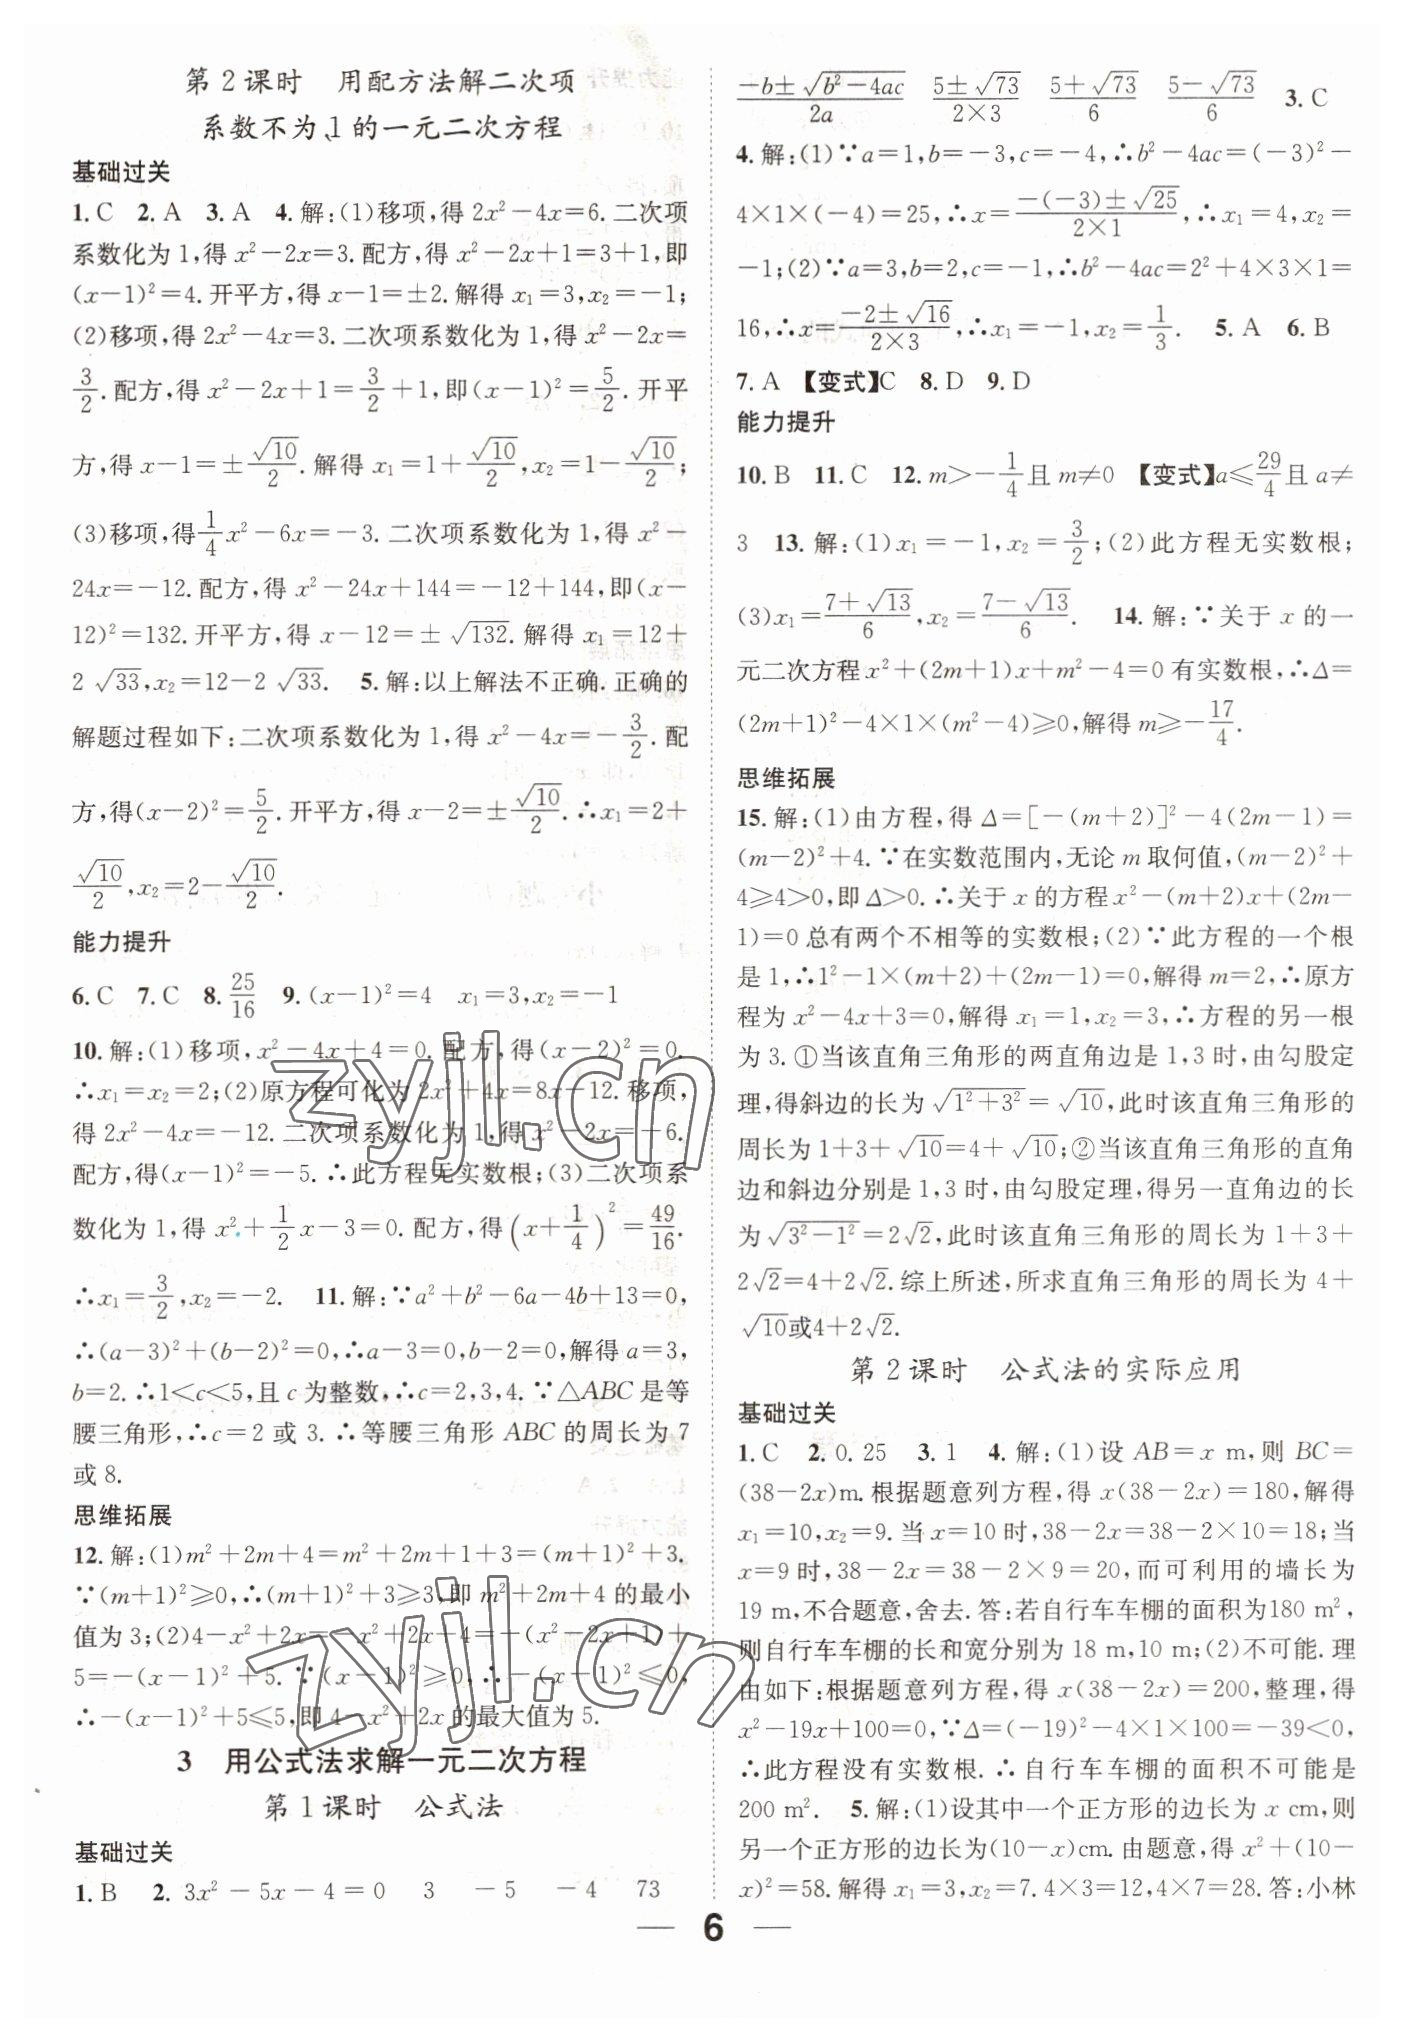 第2课时　用配方法解二次项
系数不为1的一元二次方程
基础过关
1. C　2. A　3. A　4. 解:(1)移项,得 2x²−4x=6. 二次项
系数化为 1,得 x²−2x=3. 配方,得 x²−2x+1=3+1,即
(x−1)²=4. 开平方,得 x−1=±2. 解得 x₁=3,x₂=−1;
(2)移项,得 2x²−4x=3. 二次项系数化为 1,得 x²−2x=
3/2. 配方,得 x²−2x+1=3/2+1,即(x−1)²=5/2. 开平
方,得 x−1=±√10/2. 解得 x₁=1+√10/2,x₂=1−√10/2;
(3)移项,得1/4x²−6x=−3. 二次项系数化为 1,得 x²−
24x=−12. 配方,得 x²−24x+144=−12+144,即(x−
12)²=132. 开平方,得 x−12=±√132. 解得 x₁=12+
2√33,x₂=12−2√33.　5. 解:以上解法不正确. 正确的
解题过程如下:二次项系数化为 1,得 x²−4x=−3/2. 配
方,得(x−2)²=5/2. 开平方,得 x−2=±√10/2. ∴x₁=2+
√10/2,x₂=2−√10/2.
能力提升
6. C　7. C　8. 25/16　9. (x−1)²=4　x₁=3,x₂=−1
10. 解:(1)移项,x²−4x+4=0. 配方,得(x−2)²=0.
∴x₁=x₂=2;(2)原方程可化为 2x²+4x=8x−12. 移项,
得 2x²−4x=−12. 二次项系数化为 1,得 x²−2x=−6.
配方,得(x−1)²=−5. ∴此方程无实数根;(3)二次项系
数化为 1,得 x²+1/2x−3=0. 配方,得(x+1/4)²=49/16.
∴x₁=3/2,x₂=−2.　11. 解:∵a²+b²−6a−4b+13=0,
∴(a−3)²+(b−2)²=0,∴a−3=0,b−2=0,解得 a=3,
b=2. ∴1<c<5,且 c 为整数,∴c=2,3,4. ∵△ABC 是等
腰三角形,∴c=2 或 3. ∴等腰三角形 ABC 的周长为 7
或 8.
思维拓展
12. 解:(1)m²+2m+4=m²+2m+1+3=(m+1)²+3.
∵(m+1)²≥0,∴(m+1)²+3≥3,即 m²+2m+4 的最小
值为 3;(2)4−x²+2x=−x²+2x+4=−(x²−2x+1)+
5=−(x−1)²+5. ∵(x−1)²≥0,∴−(x−1)²≤0,
∴−(x−1)²+5≤5,即 4−x²+2x 的最大值为 5.
3　用公式法求解一元二次方程
第1课时　公式法
基础过关
1. B　2. 3x²−5x−4=0　3　−5　−4　73
(−b±√(b²−4ac))/2a　(5±√73)/(2×3)　(5+√73)/6　(5−√73)/6　3. C
4. 解:(1)∵a=1,b=−3,c=−4,∴b²−4ac=(−3)²−
4×1×(−4)=25,∴x=(−(−3)±√25)/(2×1),∴x₁=4,x₂=
−1;(2)∵a=3,b=2,c=−1,∴b²−4ac=2²+4×3×1=
16,∴x=(−2±√16)/(2×3),∴x₁=−1,x₂=1/3.　5. A　6. B
7. A　【变式】C　8. D　9. D
能力提升
10. B　11. C　12. m>−1/4且 m≠0　【变式】a≤29/4且 a≠
3　13. 解:(1)x₁=−1,x₂=3/2;(2)此方程无实数根;
(3)x₁=(7+√13)/6,x₂=(7−√13)/6.　14. 解:∵关于 x 的一
元二次方程 x²+(2m+1)x+m²−4=0 有实数根,∴Δ=
(2m+1)²−4×1×(m²−4)≥0,解得 m≥−17/4.
思维拓展
15. 解:(1)由方程,得 Δ=[−(m+2)]²−4(2m−1)=
(m−2)²+4. ∵在实数范围内,无论 m 取何值,(m−2)²+
4≥4>0,即 Δ>0. ∴关于 x 的方程 x²−(m+2)x+(2m−
1)=0 总有两个不相等的实数根;(2)∵此方程的一个根
是 1,∴1²−1×(m+2)+(2m−1)=0,解得 m=2,∴原方
程为 x²−4x+3=0,解得 x₁=1,x₂=3,∴方程的另一根
为 3. ①当该直角三角形的两直角边是 1,3 时,由勾股定
理,得斜边的长为 √(1²+3²)=√10,此时该直角三角形的
周长为 1+3+√10=4+√10;②当该直角三角形的直角
边和斜边分别是 1,3 时,由勾股定理,得另一直角边的长
为 √(3²−1²)=2√2,此时该直角三角形的周长为 1+3+
2√2=4+2√2. 综上所述,所求直角三角形的周长为 4+
√10或4+2√2.
第2课时　公式法的实际应用
基础过关
1. C　2. 0.25　3. 1　4. 解:(1)设 AB=x m,则 BC=
(38−2x)m. 根据题意列方程,得 x(38−2x)=180,解得
x₁=10,x₂=9. 当 x=10 时,38−2x=38−2×10=18;当
x=9 时,38−2x=38−2×9=20,而可利用的墙长为
19 m,不合题意,舍去. 答:若自行车车棚的面积为180 m²,
则自行车车棚的长和宽分别为 18 m,10 m;(2)不可能. 理
由如下:根据题意列方程,得 x(38−2x)=200,整理,得
x²−19x+100=0,∵Δ=(−19)²−4×1×100=−39<0,
∴此方程没有实数根. ∴自行车车棚的面积不可能是
200 m².　5. 解:(1)设其中一个正方形的边长为 x cm,则
另一个正方形的边长为(10−x)cm. 由题意,得 x²+(10−
x)²=58. 解得 x₁=3,x₂=7. 4×3=12,4×7=28. 答:小林
6
zyjl.cn
zyjl.cn